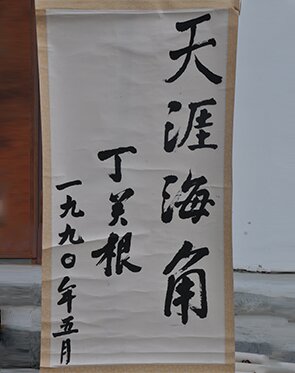 天涯海角
丁关根
一九九〇年五月